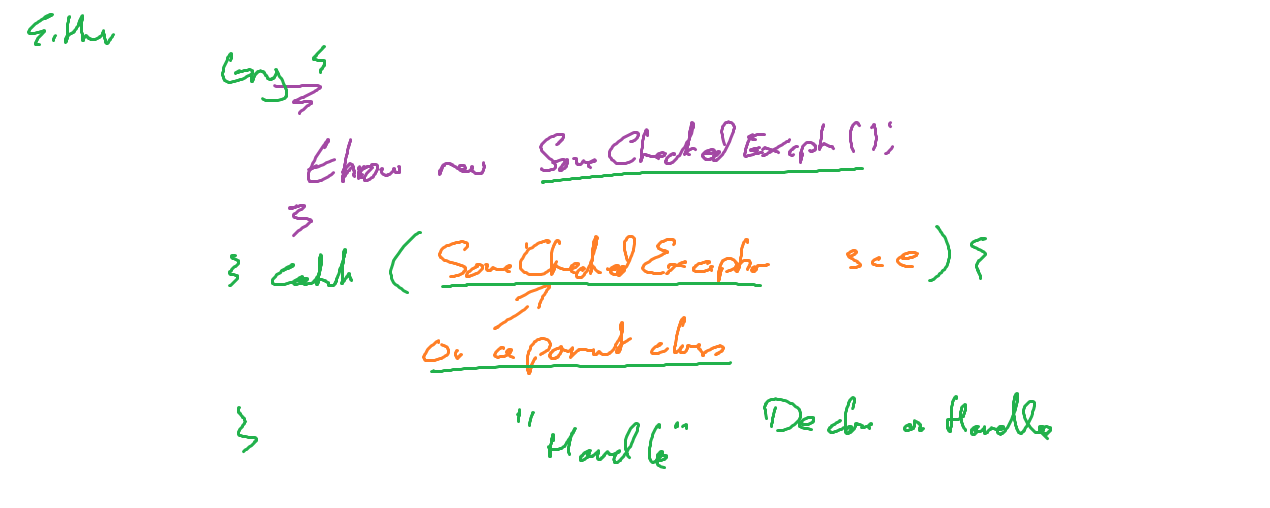 Either
try {
{
throw new SomeCheckedException();
}
} catch ( SomeCheckedException sce ) {
or a parent class
}
"Handle" Declare or Handle